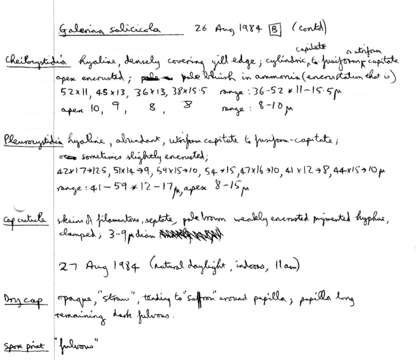 Galerina salicicola 26 Aug 1984 B (contd)
capitate or utriform
Cheilocystidia hyaline, densely covering gill edge; cylindric, to fusiform capitate
apex encrusted; pale bluish in ammonia (encrustation that is)
52×11, 45×13, 36×13, 38×15.5 range: 36-52 × 11-15.5µ
apex 10, 9, 8, 8 range: 8-10µ
Pleurocystidia hyaline, abundant, utriform capitate to fusiform-capitate;
sometimes slightly encrusted;
42×17→12.5, 51×14→9, 59×15→10, 54×15, 47×16→10, 41×12→8, 44×15→10µ
range: 41-59 × 12-17µ, apex 8-15µ
Cap cuticle skein of filamentous, septate, pale brown weakly encrusted pigmented hyphae,
clamped, 3-9µ diam
27 Aug 1984 (natural daylight, indoors, 11am)
Dry cap opaque, "straw", tending to "saffron" around papilla; papilla long
remaining dark fulvous.
Spore print "fulvous"